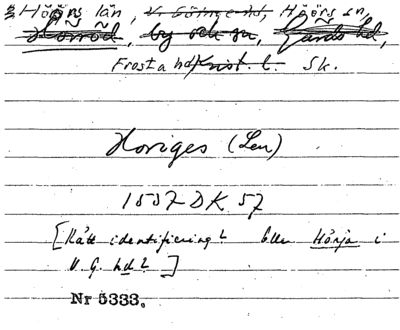 Höörs län, V. Göinge hd, Höörs sn,
Hörröd, by och sn, Gärds hd,
Frosta hd, Krist. l. Sk.
Horiges (Len)
1537 DK 57
[Rätt identifiering? Eller Hörja i
V. G. hd?]
Nr 5333.